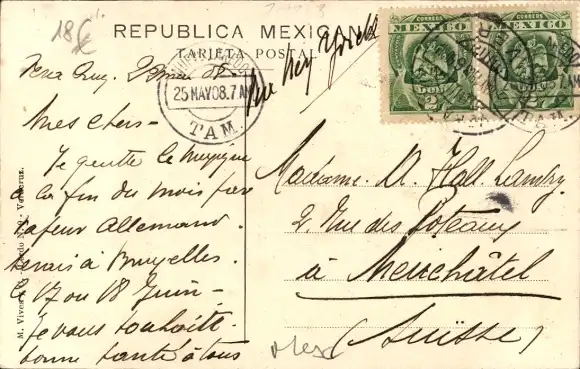 18€
REPUBLICA MEXICANA
TARJETA POSTAL
via New York
CORREOS
MEXICO
2
CORREOS
MEXICO
2
25 MAY 08. 7 AM
TAM.
Vera Cruz,
Mes Chers -
Je quitte le Mexique
à la fin du mois par
vapeur Allemand.
serais à Bruxelles.
le 17 ou 18 Juin -
Je vous souhaite
bonne santé à tous
Madame. A. Hall Landry
2, Rue des Poteaux
à Neuchâtel
(Suisse)
M. Vives
Veracruz.